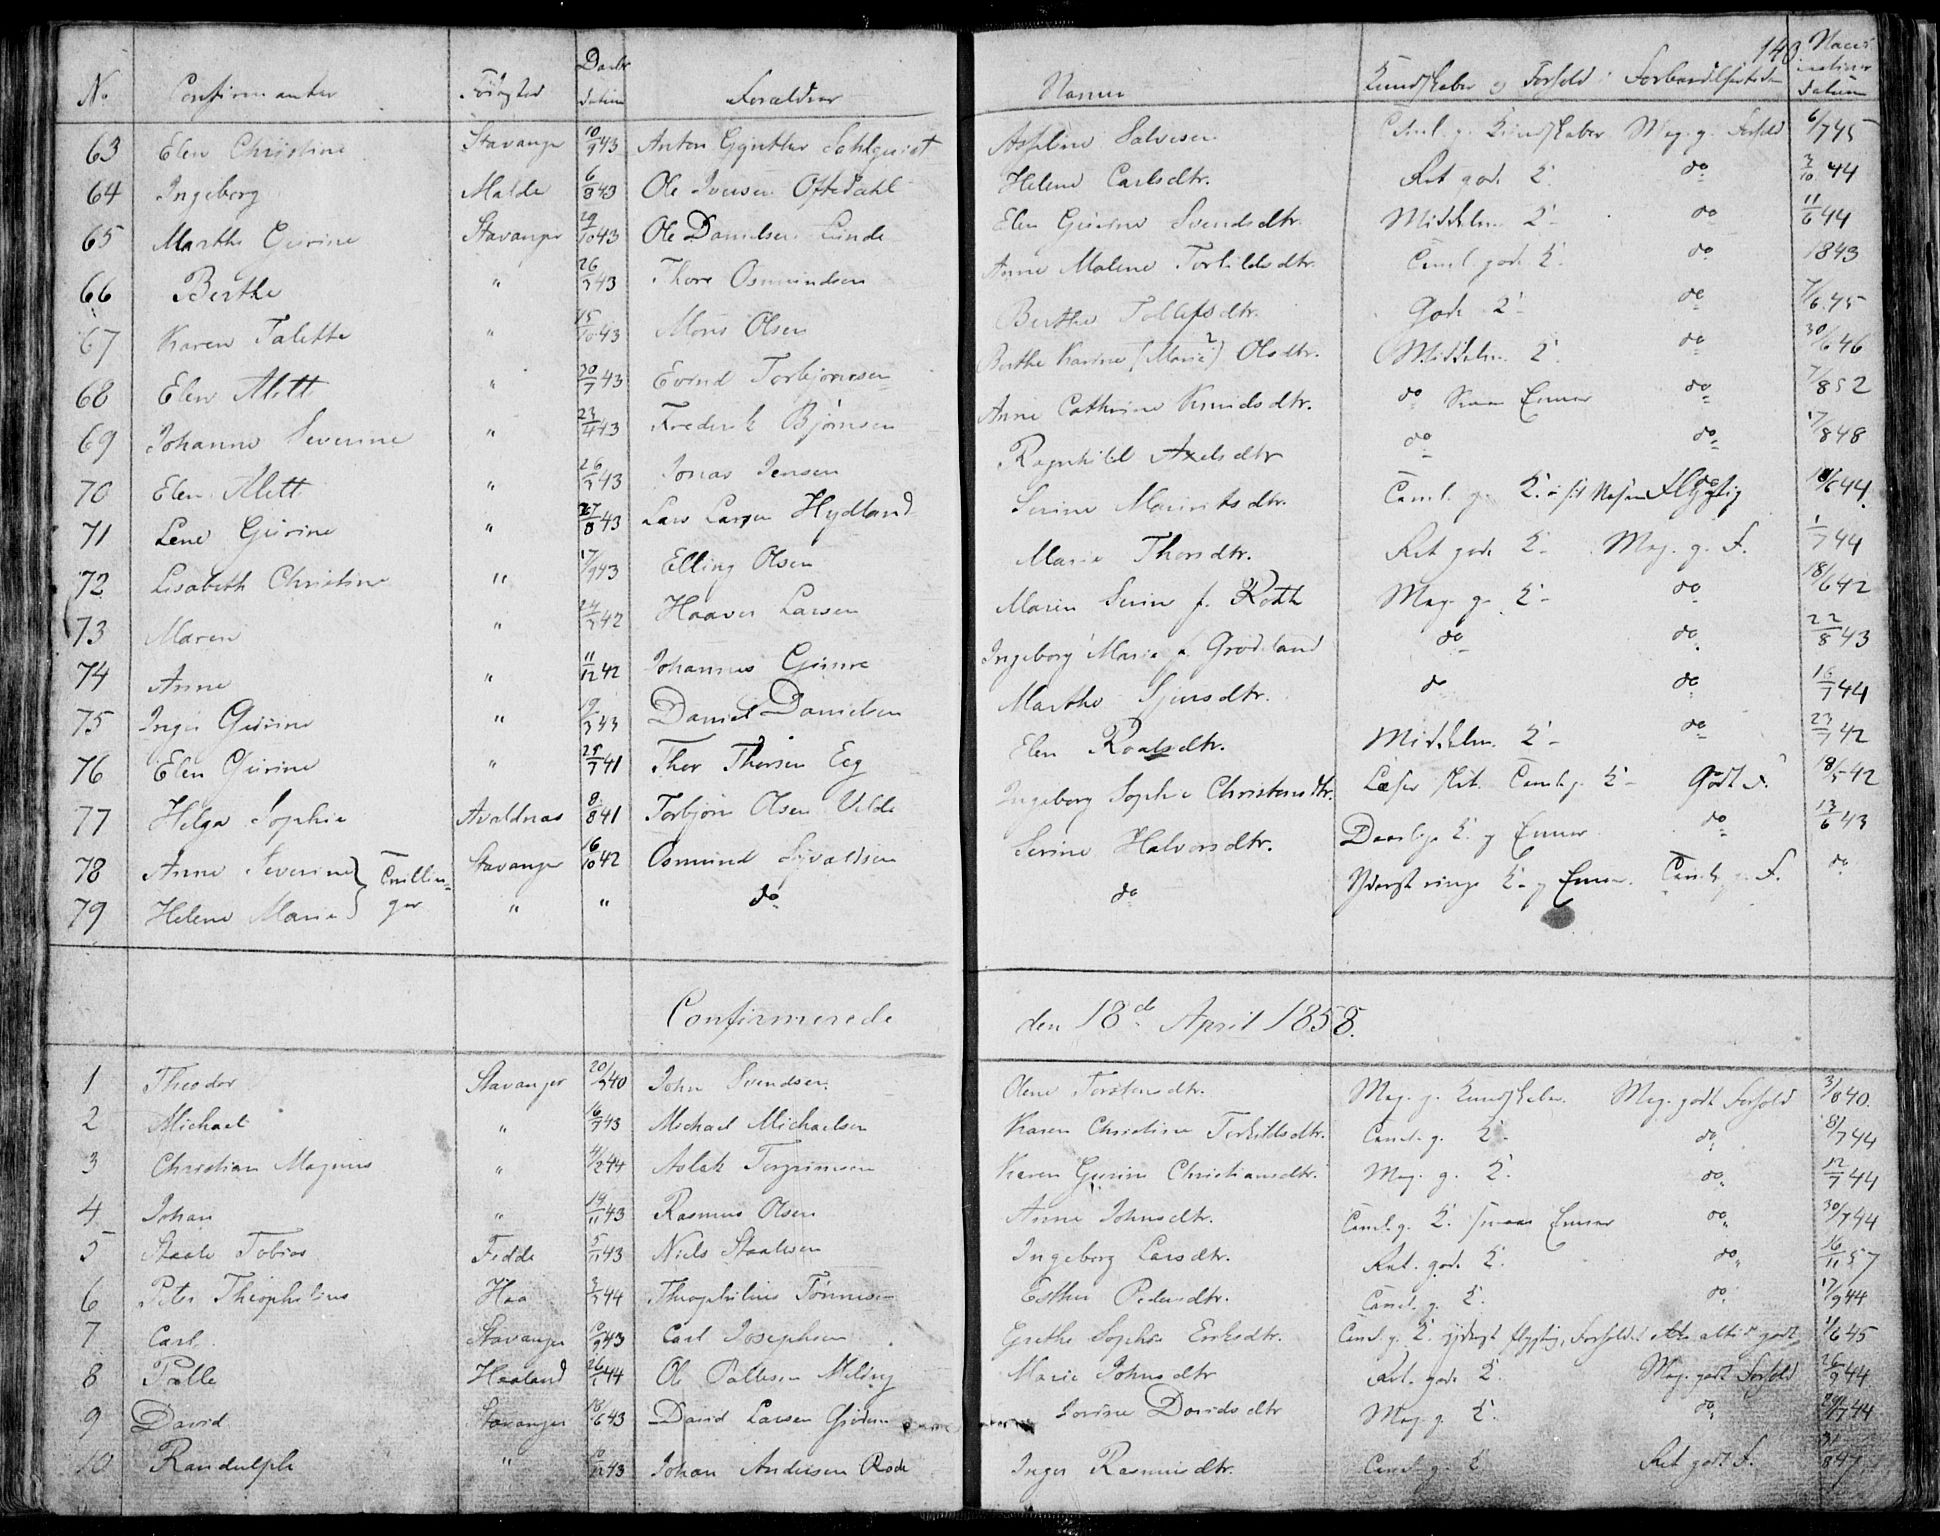 140
No Confirmanter Fødested Daabs Datum Forældres Navne Kundskaber og Forhold i Forberedelsestiden Vaccinations Datum
63 Elen Christine Stavanger 10/9 43 Anton Gynther Sahlqvist Salvesen Caml. g. Kundskaber Meg. g. Forhold 6/7 45
64 Ingeborg Malde 6/8 43 Ole Iversen Oftedahl Helene Carlsdtr. Ret gode K. do 3/10 44
65 Marthe Gurine Stavanger 43 Ole Danielsen Lunde Elen Gurine Svendsdtr. Middelm. K. do 11/6 44
66 Berthe " 26/ 43 Thore Osmundsen Anne Malene Torkildsdtr. Caml. gode K. do 1843
67 Karen Talette " 15/10 43 Mons Olsen Berthe Tollefsdtr. Gode K. do 7/6 45
68 Elen Alette " 20/7 43 Evind Torbjørnsen Berthe Karine (Marie?) Olsdtr. Middelm. K. do 30/6 46
69 Johanne Severine " 23/4 43 Frederik Bjørnsen Anne Cathrine Knudsdtr. do Svar Emner do 7/8 52
70 Elen Alette " 26/ 43 Jonas Jensen Ragnhild Axelsdtr do do 17/8 48
71 Lene Gurine " 27/8 43 Lars Larsen Hydland Serine Mauritsdtr. Caml. g. K. 44
72 Lisabeth Christine " 17/9 43 Elling Olsen Marie Thorsdtr. Ret gode K. Meg. g. F. 1/7 44
73 Maren " 42 Haaver Larsen Maren Serine f. Roth Meg. g. K. do 18/6 42
74 Anne " 11/12 42 Johannes Gimre Ingeborg Marie f. Grødeland do do 22/8 43
75 Inger Gurine " 19/3 43 Daniel Danielsen Marthe Sjursdtr. do do 16/7 44
76 Elen Gurine " 25/7 41 Thor Thorsen Eeg Elen Roalsdtr. Middelm. K. do 23/7 42
77 Helga Sophie Avaldsnæs 8/8 41 Torbjørn Olsen Velde Ingeborg Sophie Christensdtr. Læser slet. Caml. g. K. Godt F. 18/5 42
78 Anne Severine } Tvillin- Stavanger 16/10 42 Osmund Syvaldsen Serine Halvorsdtr. Daarlige K. og Emner do 13/6 43
79 Helene Marie } ger " " do do Yderst ringe K. og Emner. Caml. g. F. do
Confirmerede den 18de April 1858.
1 Theodor Stavanger 20/ 40 John Svendsen Olene Torstensdtr. Meg. g. Kundskaber. Meg. godt Forhold 3/8 40.
2 Michael " 16/7 43 Michael Michaelsen Karen Christine Torkildsdtr. Caml. g. K. do 8/7 44
3 Christian Magnus " 4/2 44 Aslak Torgrimsen Karen Gurine Christiansdtr. Meg. g. K. do 12/7 44
4 Johan " 19/11 43 Rasmus Olsen Anne Johnsdtr. Caml. g. K. smaa Emner do 30/7 44
5 Staale Tobias Fedde 5/11 43 Niels Staalesen Ingeborg Larsdtr. Ret. gode K. do 16/11 57
6 Peter Theophilius Haa 44 Theophilius Tønnesen Esther Pedersdtr. Caml. g. K. do 17/9 44
7 Carl. Stavanger 43 Carl Josephsen Grethe Sophie Eriksdtr. Caml. g. K. yderst flygtig, Forhold ikke altid godt 1/6 45
8 Palle Haaland 26/1 44 Ole Pallesen Meling Marie Johnsdtr Ret. gode K. Meg. godt Forhold 26/9 44
9 David Stavanger 18/6 43 David Larsen Davidsdtr Meg. g. K. do 44
10 Randulph " 43 Johan Andersen Rode Inger Rasmusdtr. Caml. g. K. Ret godt F. 31/8 47